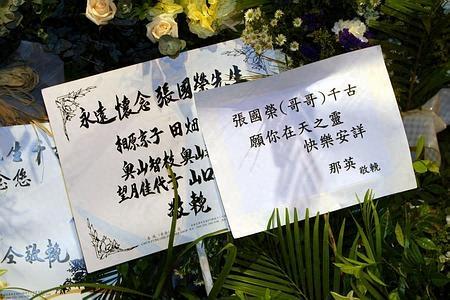 永遠懷念 張國榮先生
相原京子 田畑
奥山智枝 奥山
望月佳代子 山口
敬輓
張國榮(哥哥)千古
願你在天之靈
快樂安詳
那英 敬輓
全敬輓